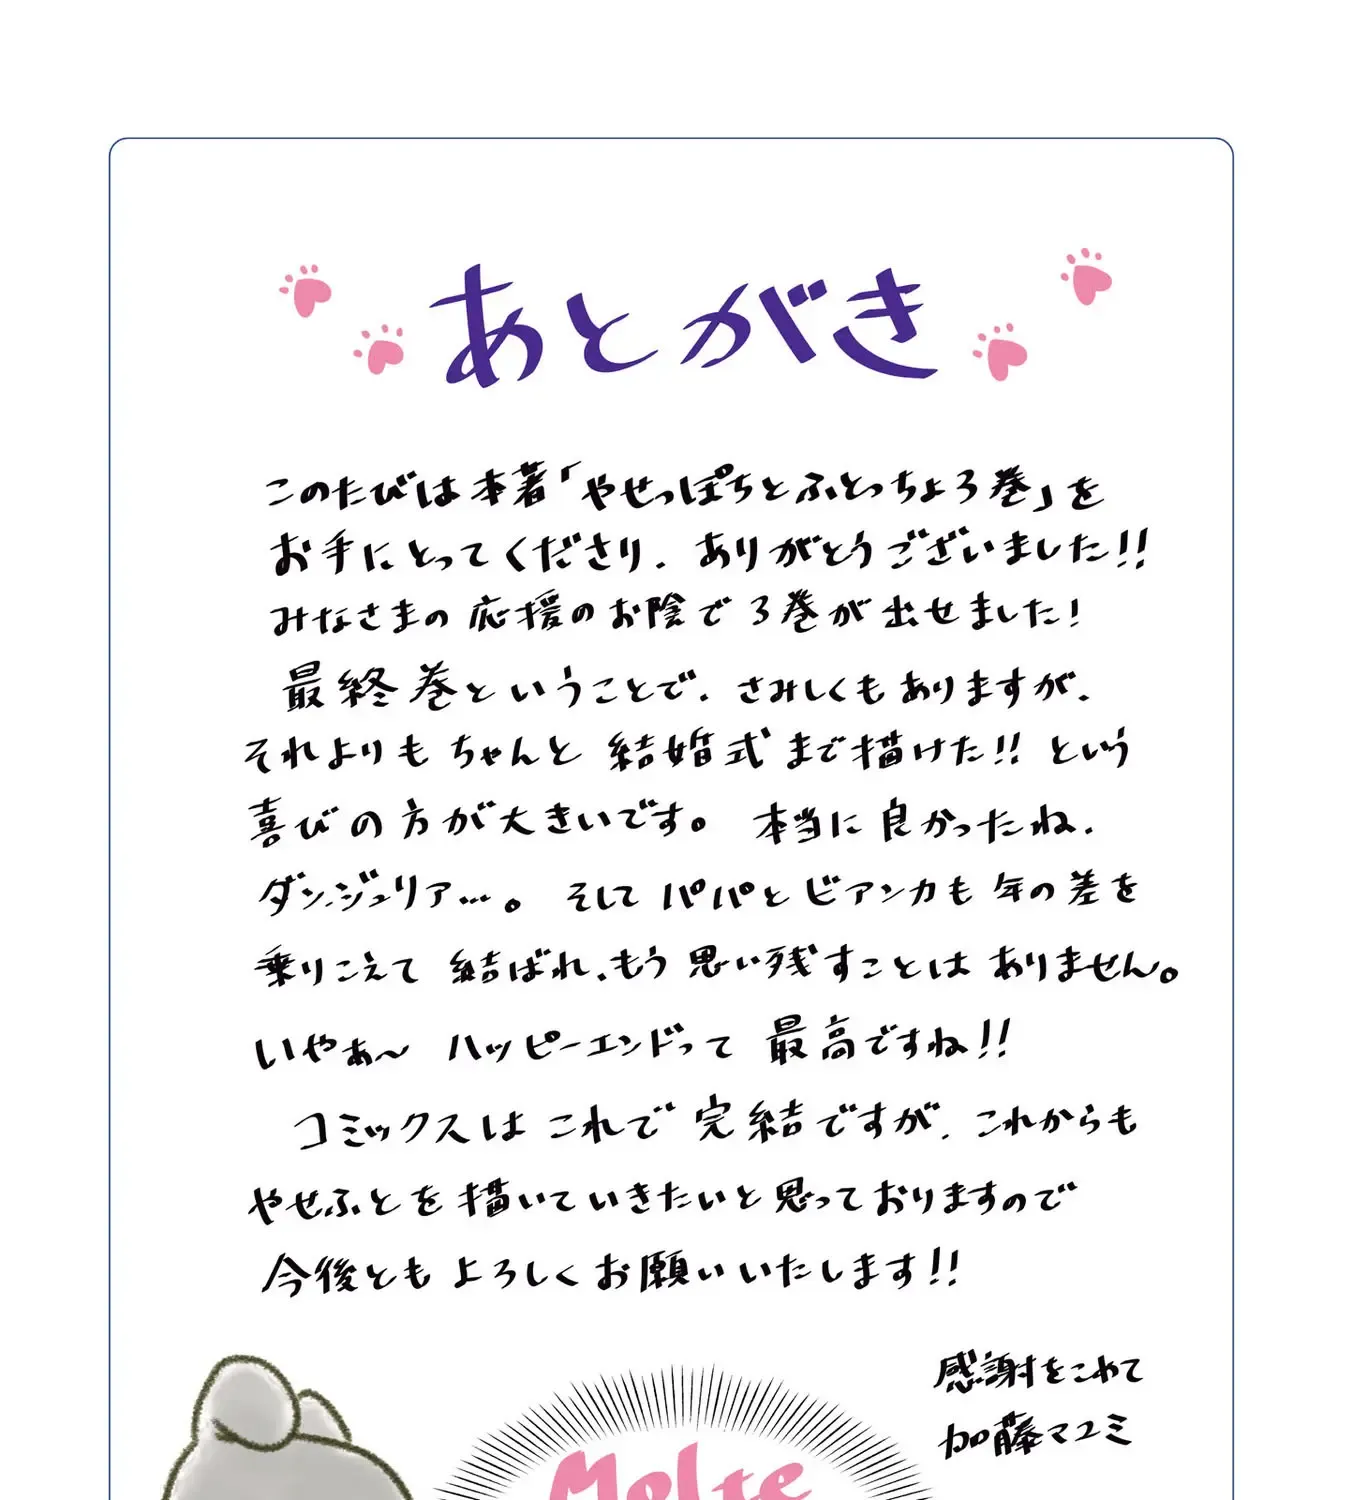 あとがき
このたびは本著「やせっぽちとふとっちょ3巻」を
お手にとってくださり、ありがとうございました!!
みなさまの応援のお陰で3巻が出せました!
最終巻ということで、さみしくもありますが、
それよりもちゃんと結婚式まで描けた!!という
喜びの方が大きいです。本当に良かったね、
ダン、ジュリア…。そしてパパとビアンカも年の差を
乗りこえて結ばれ、もう思い残すことはありません。
いやぁ〜ハッピーエンドって最高ですね!!
コミックスはこれで完結ですが、これからも
やせふとを描いていきたいと思っておりますので
今後ともよろしくお願いいたします!!
感謝をこめて
加藤マユミ
Molte